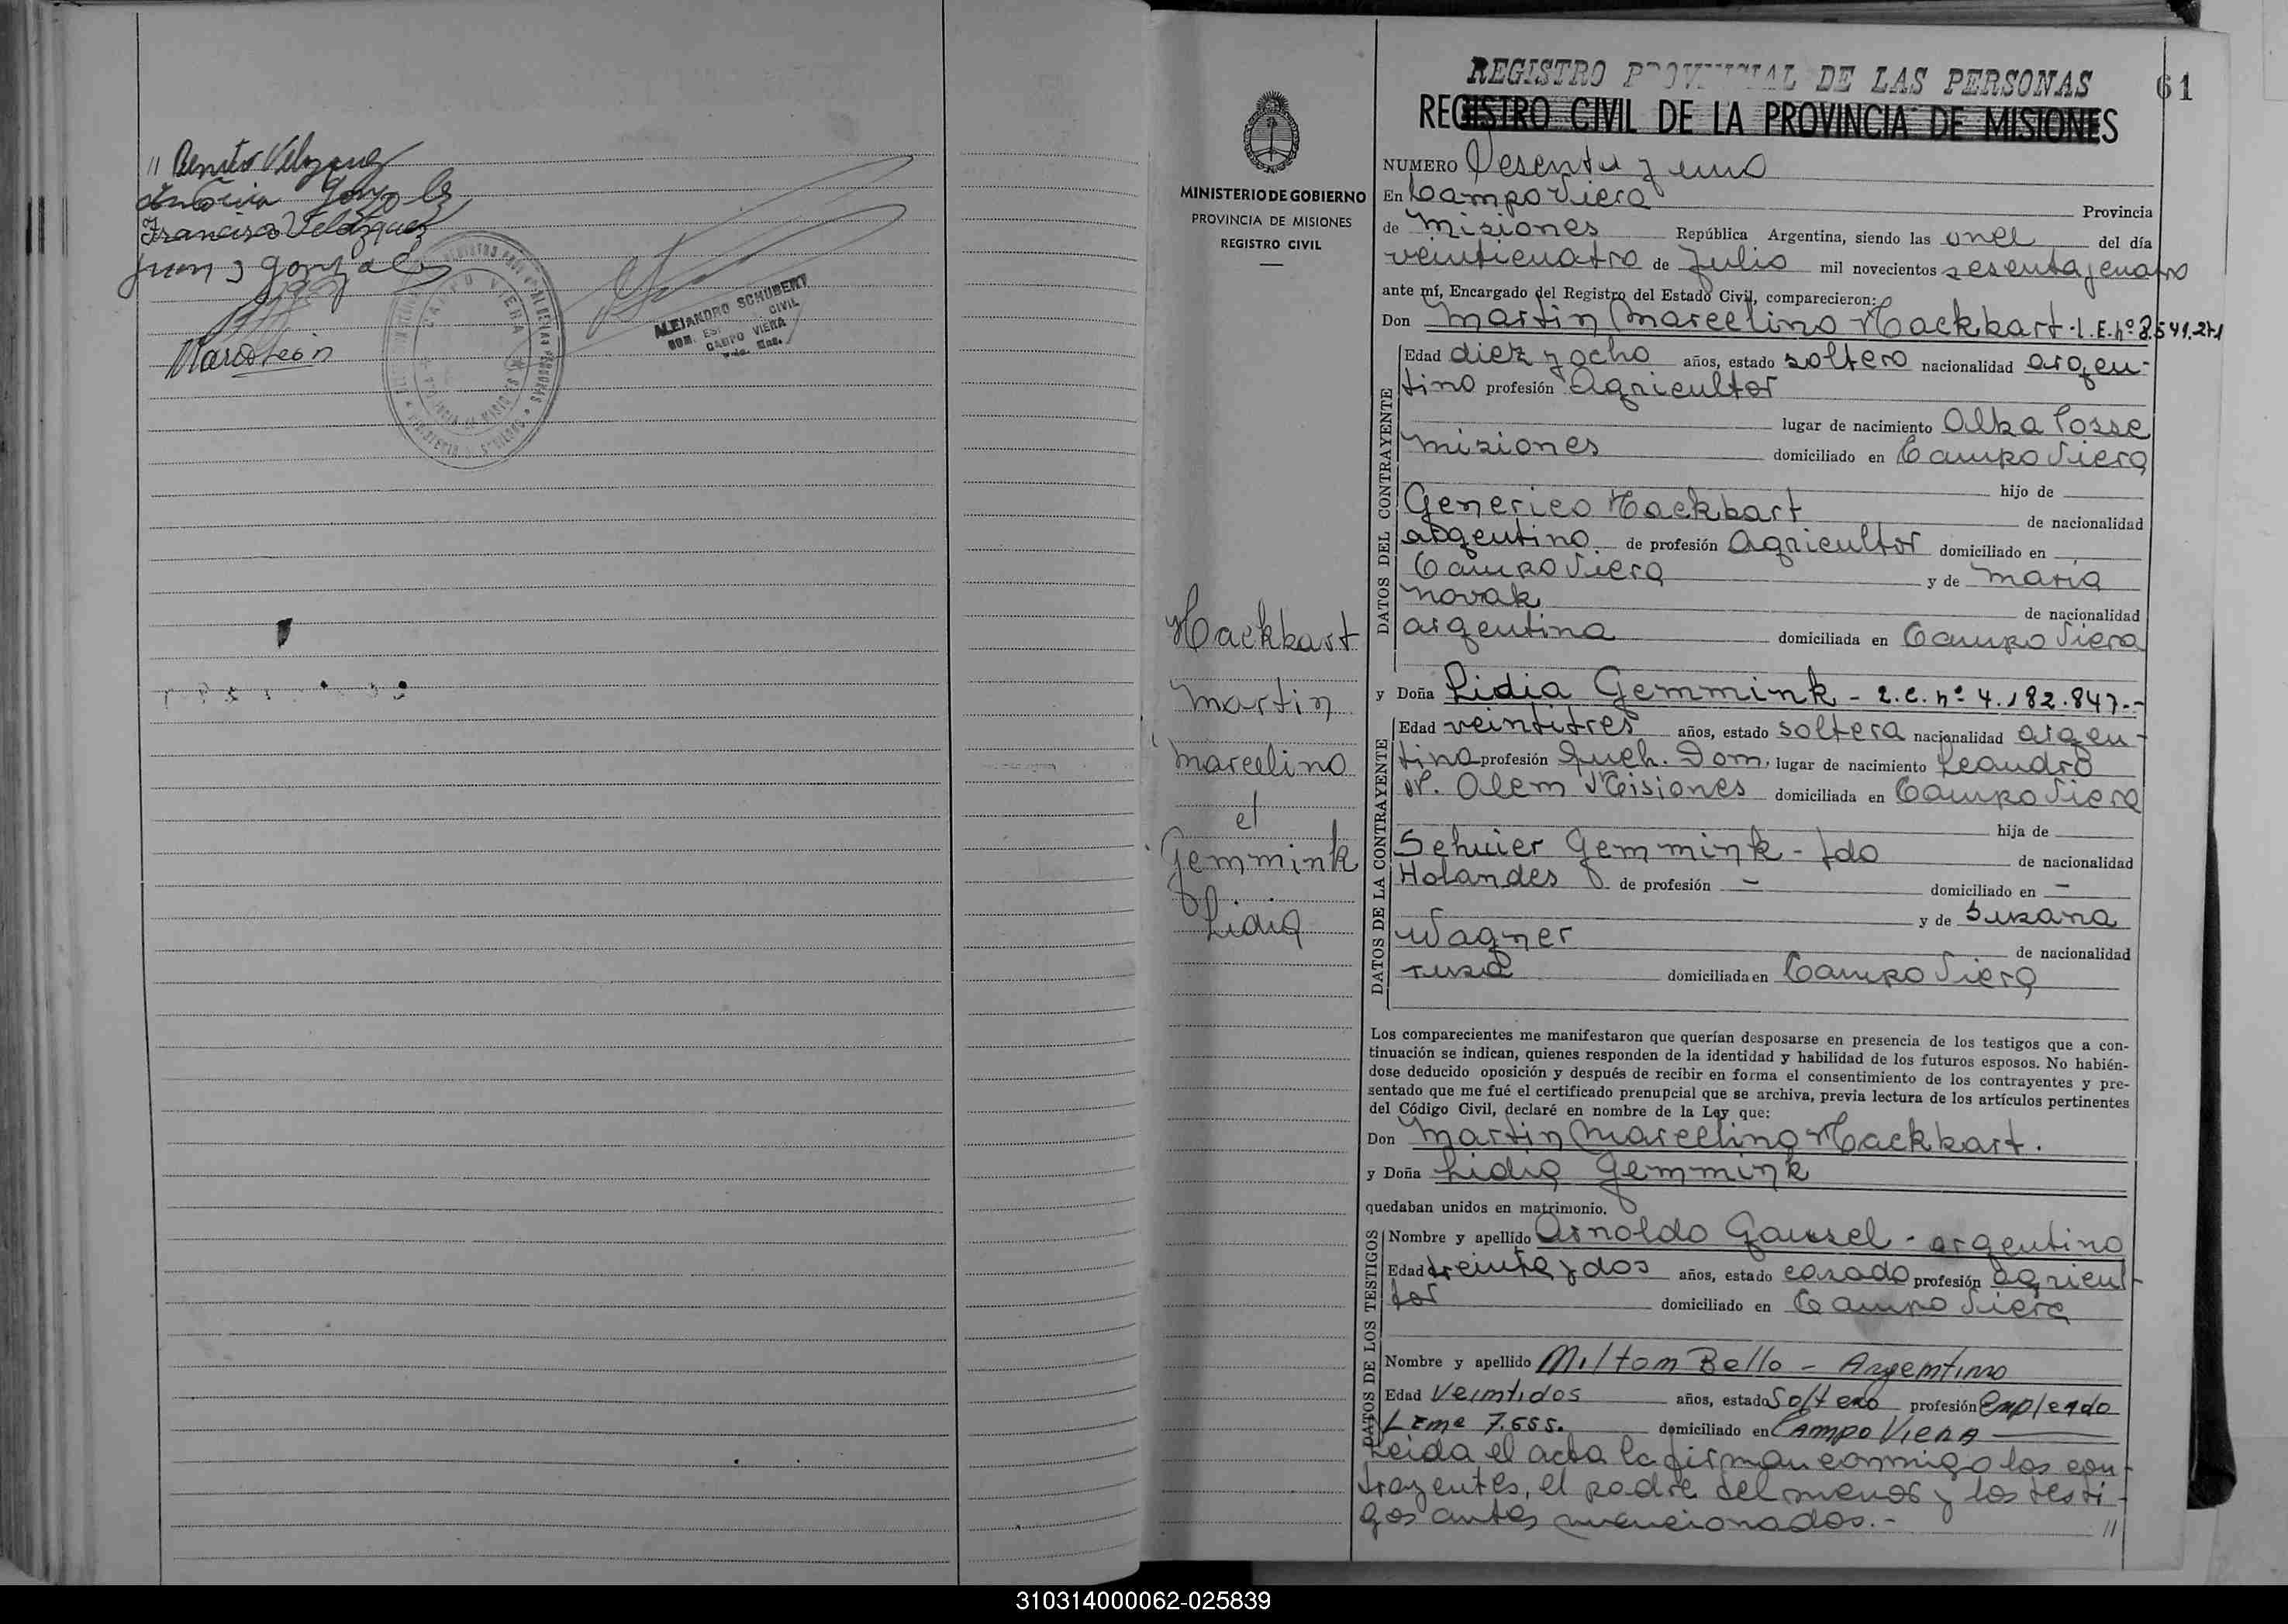 // Benito Velazquez
Francisco Velázquez
Juan J Gonzales
CAMPO VIERA
ALEJANDRO SCHUBERT
CIVIL
CAMPO VIERA
61
REGISTRO PROVINCIAL DE LAS PERSONAS
REGISTRO CIVIL DE LA PROVINCIA DE MISIONES
MINISTERIO DE GOBIERNO
PROVINCIA DE MISIONES
REGISTRO CIVIL
Hackbart
Martin
Marcelino
et
Gemmink
Lidia
NUMERO Sesenta y uno
En Campo Viera Provincia
de Misiones República Argentina, siendo las once del día
veinticuatro de Julio mil novecientos sesenta y cuatro
ante mí, Encargado del Registro del Estado Civil, comparecieron:
Don Martin Marcelino Hackbart. L.E. nº 8.541.271
DATOS DEL CONTRAYENTE
Edad diez y ocho años, estado soltero nacionalidad argen-
tino profesión Agricultor
lugar de nacimiento Alba Posse
Misiones domiciliado en Campo Viera
hijo de
Generico Hackbart de nacionalidad
argentino de profesión Agricultor domiciliado en
Campo Viera y de Maria
Novak de nacionalidad
argentina domiciliada en Campo Viera
y Doña Lidia Gemmink - L.C. nº 4.182.847.-
DATOS DE LA CONTRAYENTE
Edad veintitres años, estado soltera nacionalidad argen-
tina profesión Queh. Dom. lugar de nacimiento Leandro
N. Alem Misiones domiciliada en Campo Viera
hija de
Gemmink - fdo de nacionalidad
Holandes de profesión - domiciliado en -
y de Suzana
Wagner de nacionalidad
rusa domiciliada en Campo Viera
Los comparecientes me manifestaron que querían desposarse en presencia de los testigos que a con-
tinuación se indican, quienes responden de la identidad y habilidad de los futuros esposos. No habién-
dose deducido oposición y después de recibir en forma el consentimiento de los contrayentes y pre-
sentado que me fué el certificado prenupcial que se archiva, previa lectura de los artículos pertinentes
del Código Civil, declaré en nombre de la Ley que:
Don Martin Marcelino Hackbart.
y Doña Lidia Gemmink
quedaban unidos en matrimonio.
DATOS DE LOS TESTIGOS
Nombre y apellido Arnoldo - argentino
Edad treinta y dos años, estado casado profesión agricul-
tor domiciliado en Campo Viera
Nombre y apellido Miltom Bello - Argemtino
Edad Veimtidos años, estado Soltero profesión Empleado
7.655. domiciliado en Campo Viera
Leida el acta la firman conmigo los con-
trayentes, el padre del menor y los testi-
gos antes mencionados.- //
310314000062-025839